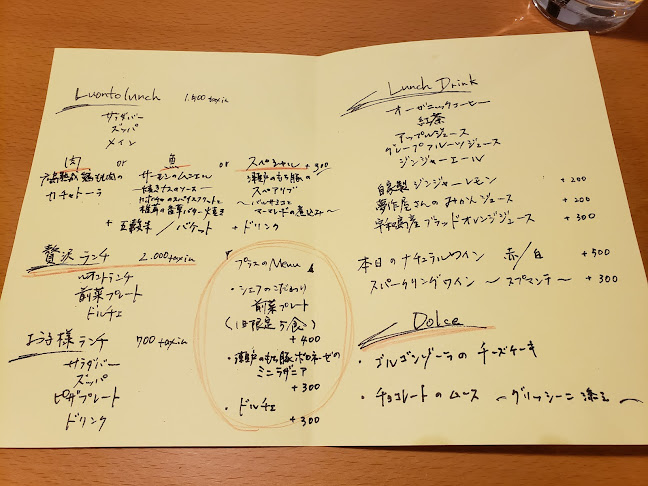 Luonto lunch 1.500 tax in
サラダバー
ズッパ
メイン
肉 or 魚 or スペシャル +300
広島熟成鶏もも肉の
カチャトーラ
サーモンのムニエル
焼きナスのソース
瀬戸のもち豚の
スペアリブ
〜バルサミコと
マーマレードの煮込み〜
+ 五穀米 / バケット + ドリンク
贅沢ランチ 2.000 tax in
ルオントランチ
前菜プレート
ドルチェ
お子様ランチ 700 tax in
サラダバー
ズッパ
ピザプレート
ドリンク
プラスのMenu
・シェフのこだわり
前菜プレート
(1日限定5食)
+400
・瀬戸のもち豚ボロネーゼの
ミニラザニア
+300
・ドルチェ
+300
Lunch Drink
オーガニックコーヒー
紅茶
アップルジュース
グレープフルーツジュース
ジンジャーエール
自家製ジンジャーレモン +200
夢作屋さんのみかんジュース +200
宇和島産ブラッドオレンジジュース +300
本日のナチュラルワイン 赤/白 +500
スパークリングワイン 〜スプマンテ〜 +300
Dolce
・ゴルゴンゾーラのチーズケーキ
・チョコレートのムース 〜グリッシーニ添え〜